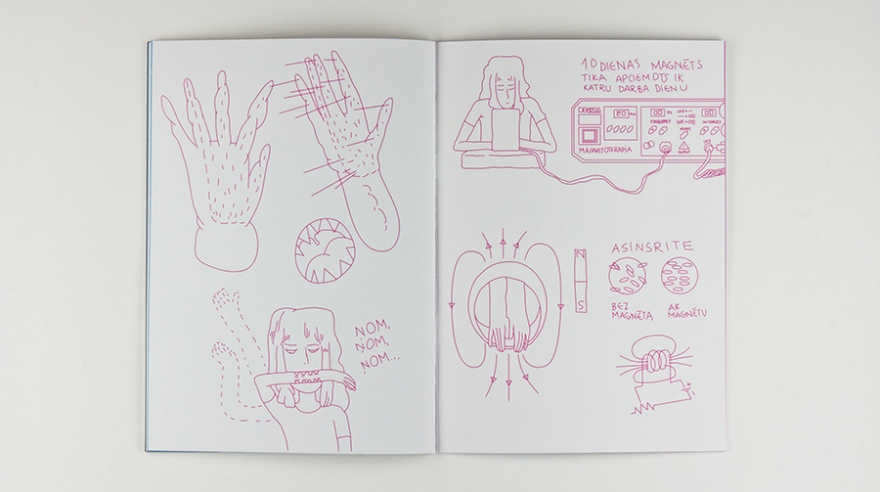 NOM,
NOM,
NOM...
10 DIENAS MAGNĒTS
TIKA APCIEMOTS IK
KATRU DARBA DIENU
MAGNETOTERAPIA
N
S
ASINSRITE
BEZ
MAGNĒTA
AR
MAGNĒTU